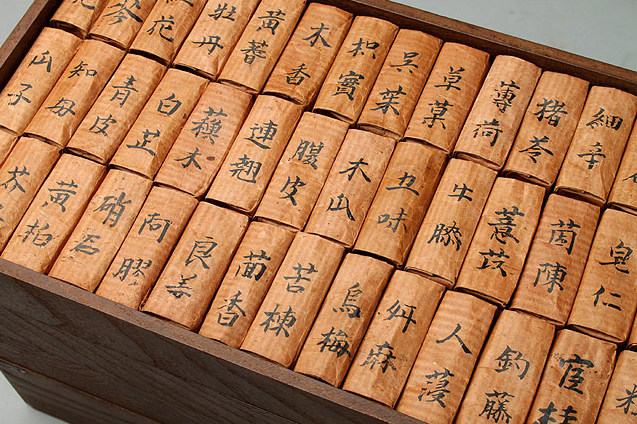 花
芩
花
牡丹
黄蓍
木香
枳實
呉茱
草菓
薄荷
猪苓
細辛
山子
知母
青皮
白芷
蘓木
連翹
腹皮
木瓜
五味
牛膝
薏苡
茵陳
皂仁
芥
黄柏
硝石
阿膠
良姜
茴香
苦楝
烏梅
升麻
人薓
釣藤
官桂